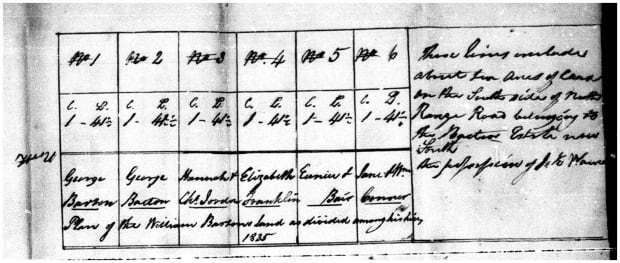 No 1 No 2 No 3 No 4 No 5 No 6
C. L. C. L. C. L. C. L. C. L. C. L.
1 - 41½ 1 - 41½ 1 - 41½ 1 - 41½ 1 - 41½ 1 - 41½
George George Hannah & Elizabeth Eunice & Jane & Wm
Barton Barton Chs Jordan Franklin Bair Connor
Plan of the William Bartons Land as divided among his heirs
1825
These lines include
about Ten Acres of Land
on the South side of North
Range Road belonging to
the Barton Estate now
South
the possession of J. K.